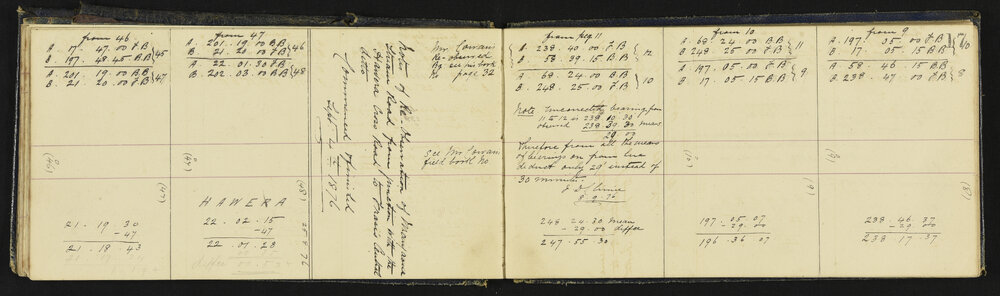 from 46
A . 17 . 47 . 00 F.B
B . 197 . 48 . 45 B B
45
A . 201 . 19 . 00 B B
B . 21 . 20 . 00 F.B
47
(46)
(47)
21 . 19 . 30
- 47
21 . 18 . 43
from 47
A . 201 . 19 . 00 B B
B . 21 . 20 . 00 F.B
46
A . 22 . 01 . 30 F.B
B . 202 . 03 . 00 B B
48
(48)
HAWERA
22 . 02 . 15
- 47
22 . 01 . 28
Commenced & finished
Sept 2 1876
Notes of Re-Observation of
Road from Junction with the
Hawera Cross Road to
Mr. Cowan's
Re-observed
By see his book
No page 32
See Mr Cowan's
field book No
from peg 11
A . 238 . 40 . 00 F.B
B . 58 . 39 . 15 B.B
12
A . 68 . 24 . 00 B.B
B . 248 . 25 . 00 F.B
10
Note Uncorrected bearing from
11 to 12 is 239 . 10 . 30
observed 238 . 39 . 30 mean
29 . 00
Therefore from all the means
of bearings on from
deduct only 29' instead of
30 minutes.
8 . 9 . 76
248 . 24 . 30 mean
- 29 . 00 differ
247 . 55 . 30
from 10
A . 68 . 24 . 00 B.B
B . 248 . 25 . 00 F.B
11
A . 197 . 05 . 00 F.B
B . 17 . 05 . 15 B.B
9
(9)
197 . 05 . 07
- 29 . 00
196 . 36 . 07
from 9
A . 197 . 05 . 00 F.B
B . 17 . 05 . 15 B.B
10
A . 58 . 46 . 15 B.B
B . 238 . 47 . 00 F.B
8
(8)
238 . 46 . 37
- 29 . 00
238 . 17 . 37